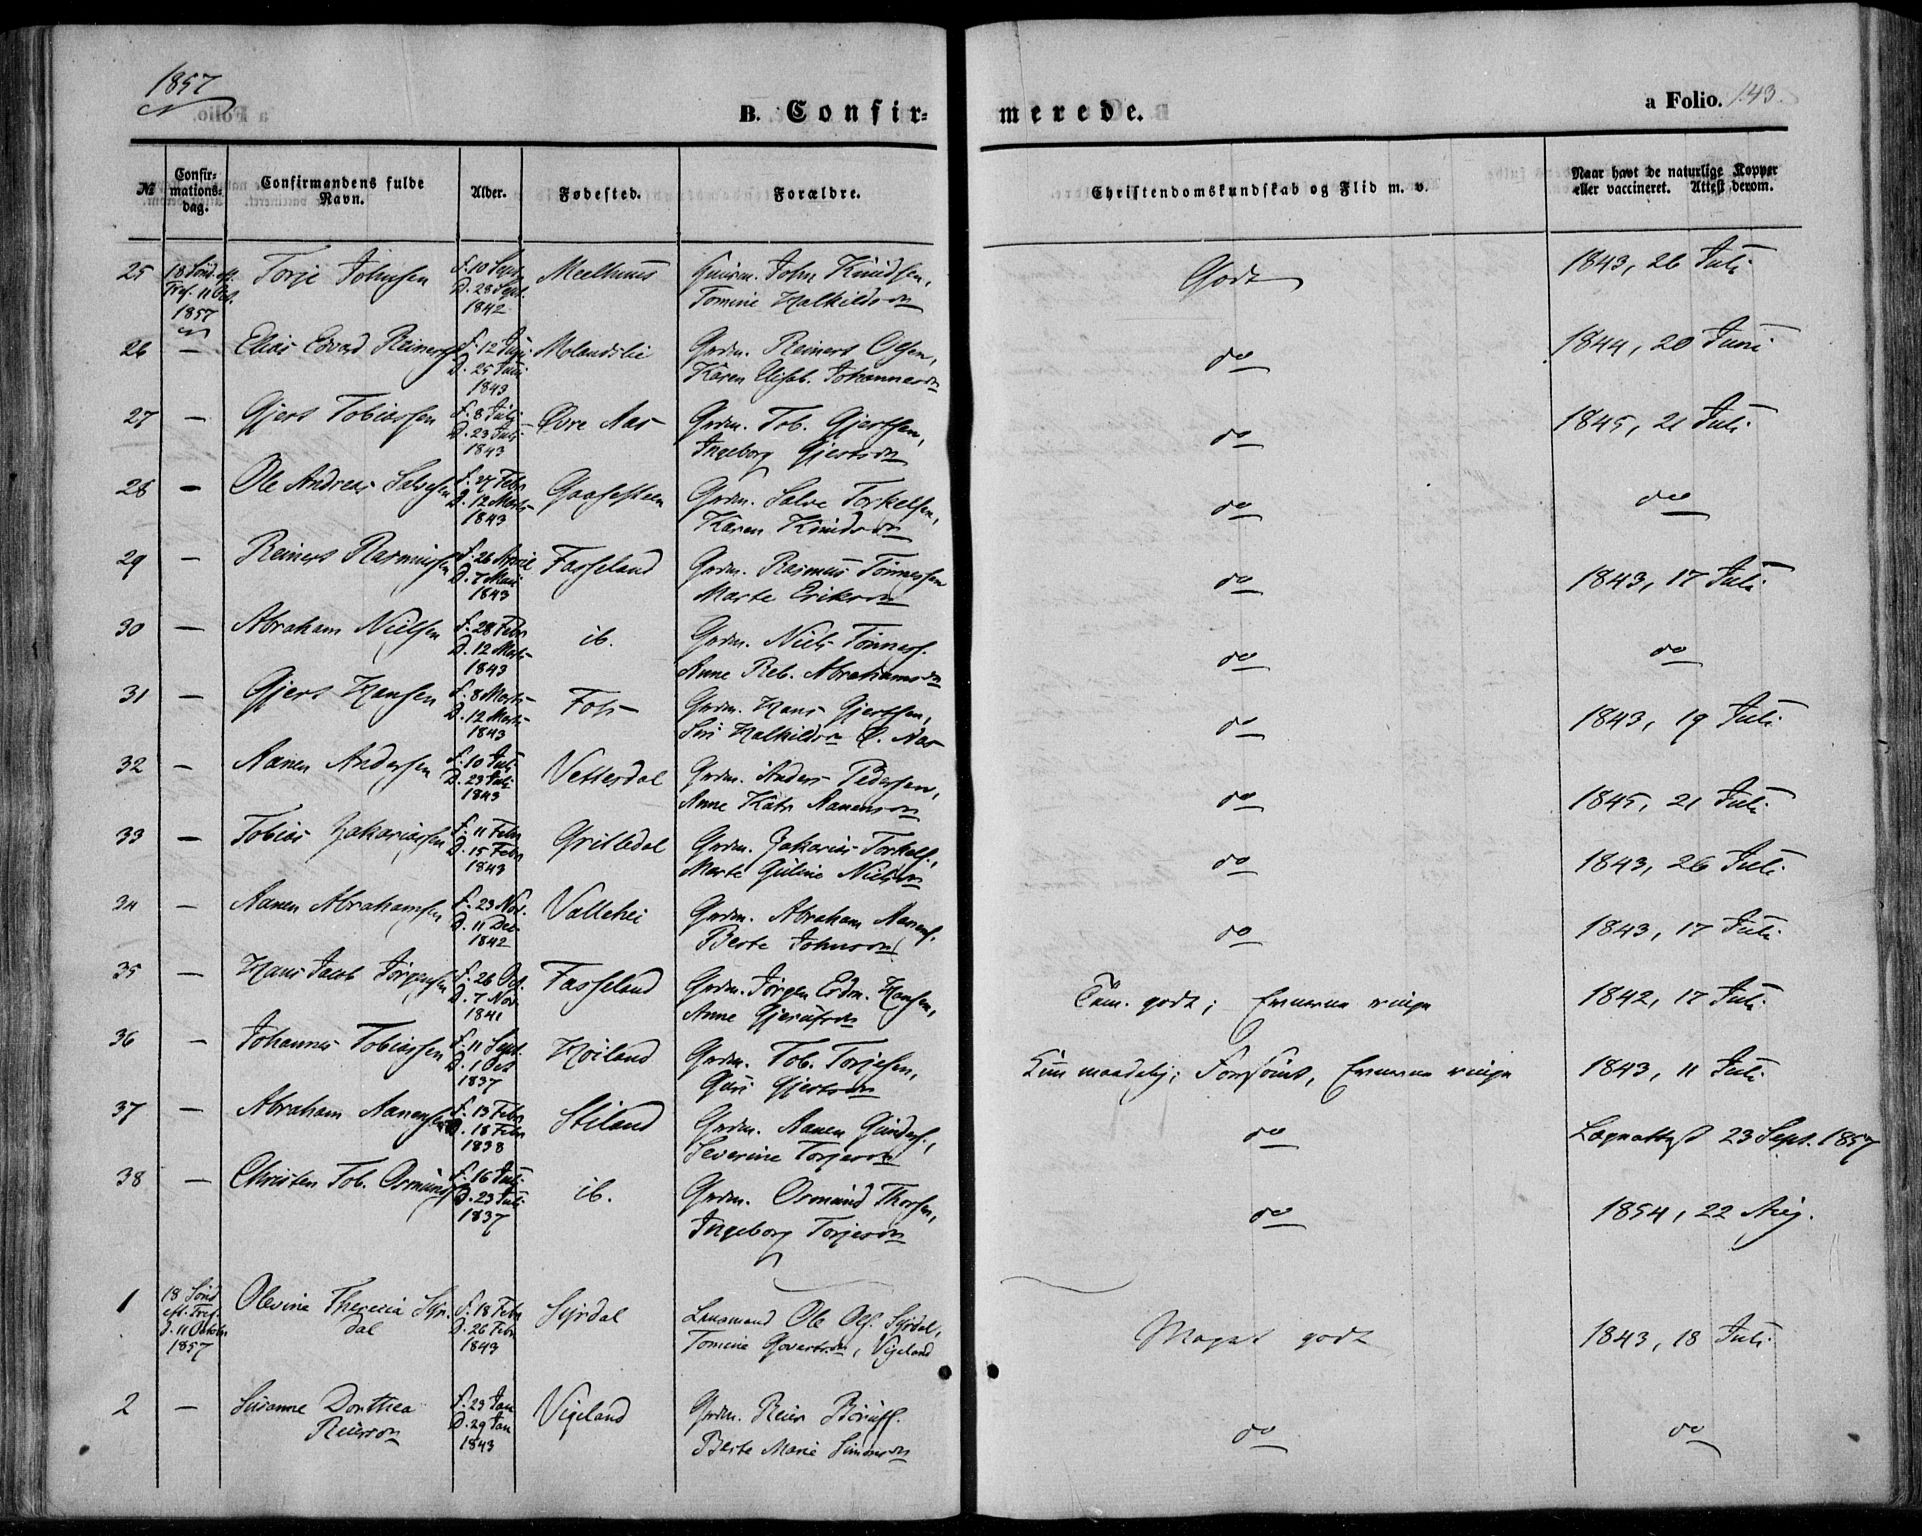 1857
B. Confir-merede.
a Folio. 143.
№ Confir-mations-dag. Confirmandens fulde Navn. Alder. Fødested. Forældre. Christendomskundskab og Flid m. v. Naar havt de naturlige Kopper eller vaccineret. Attest derom.
25 18 Sönd. eft. Tref. 11 Oct. 1857 Torje Johnsen F. 10 Sept. D. 23 Sept. 1842 Meelhuus John Knudsen, Tomine Halkildsdn Godt 1843, 26 Juli
26 — Elias Edvard Reinerts. F. 12 Juni D. 25 Juni 1843 Molandslie Grdm. Reinert Olsen, Karen Elisab. Johannesdn do 1844, 20 Juni
27 — Gjert Tobiassen F. 8 Juli D. 23 Juli 1843 Øvre Aas Grdm. Tob. Gjertsen, Ingeborg Gjertsdn do 1845, 21 Juli
28 — Ole Andreas Salvesen F. 27 Febr D. 12 Marts 1843 Gaasesteen Grdm. Salve Torkelsen, Karen Knudsdn do do
29 — Reinert Rasmussen F. 26 April D. 7 Mai 1843 Fasseland Grdm. Rasmus Tönnessen Marte Eriksdn do 1843, 17 Juli
30 — Abraham Nielsen F. 28 Febr D. 12 Marts 1843 ib. Grdm. Niels Tönness. Anne Reb. Abrahamsdn do do
31 — Gjert Hansen F. 8 Marts D. 12 Marts 1843 Foss Grdm. Hans Gjertsen, Siri Halkildsdn Ø. Aas do 1843, 19 Juli
32 — Aanen Andersen F. 10 Juli D. 23 Juli 1843 Vettesdal Grdm. Anders Pedersen, Anne Katr. Aanensdn do 1845, 21 Juli
33 — Tobias Zakariassen F. 11 Febr D. 15 Febr 1843 Gritledal Grdm. Zakarias Torkels., Marte Guline Nielsdn do 1843, 26 Juli
34 — Aanen Abrahamsen F. 23 Nov. D. 11 Dec. 1842 Vallehei Grdm. Abraham Aanens. Berte Johnsdn do 1843, 17 Juli
35 — Hans Jacob Jörgensen F. 26 Oct. D. 7 Nov. 1841 Fasseland Grdm. Jörgen Edm. Hansen, Anne Tæm. godt; Evnerne ringe 1842, 17 Juli
36 — Johannes Tobiassen F. 11 Sept. D. 1 Oct 1837 Höiland Grdm. Tob. Torjesen, Guri Gjertsdn Kun maadelig; Forsömt, Evnerne ringe 1843, 11 Juli
37 — Abraham Aanensen F. 13 Febr D. 18 Febr 1838 Stiland Grdm. Aanen Gunders., Severine Torjesdn do Lægeattest 23 Sept. 1857
38 — Christen Tob. Osmunds. F. 16 Juli D. 23 Juli 1837 ib. Grdm. Osmund Thorsen, Ingeborg Torjesdn do 1854, 22 Aug.
1 18 Sönd eft. Tref. D. 11 Octobr 1857 Olevine Theresia Syrdal F. 18 Febr D. 26 Febr 1843 Syrdal Lensmand Ole Ols. Syrdal, Tomine Govertsdn, Vigeland Meget godt 1843, 18 Juli
2 — Susanne Dorthea Reiersdn F. 23 Jan D. 29 Jan 1843 Vigeland Grdm. Reier Börufs. Berte Marie Simonsdn do do